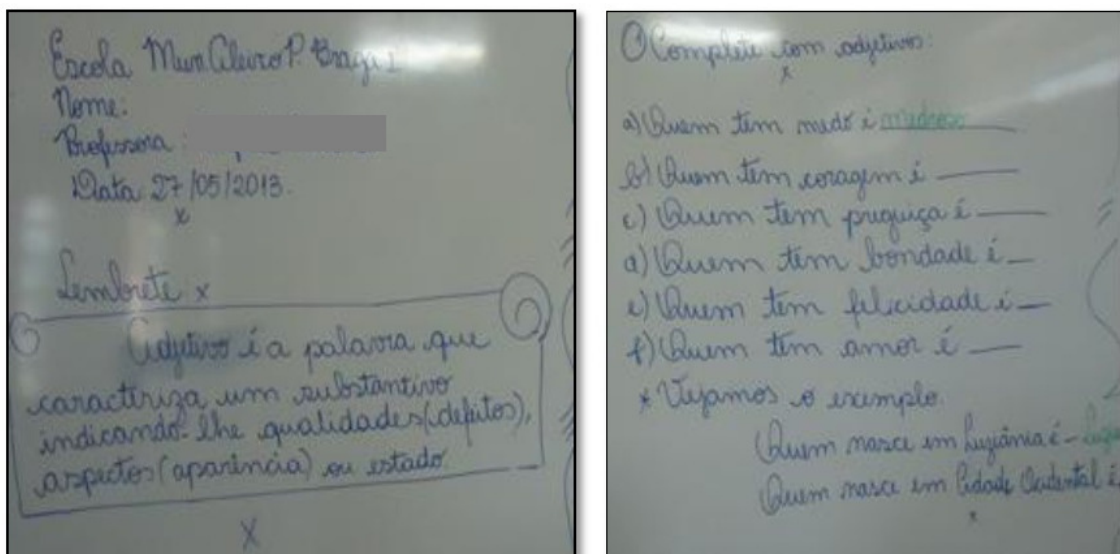 Escola Mun Aleixo P. Braga I
Nome:
Professora:
Data 27/05/2013.
x
Lembrete x
Adjetivo é a palavra que
caracteriza um substantivo
indicando-lhe qualidades (defeitos),
aspectos (aparência) ou estado
X
① Complete com adjetivos:
x
a) Quem tem medo é medroso
b) Quem tem coragem é
c) Quem tem preguiça é
d) Quem tem bondade é
e) Quem tem felicidade é
f) Quem tem amor é
* Vejamos o exemplo.
Quem nasce em Luziânia é -
Quem nasce em Cidade Ocidental é
x